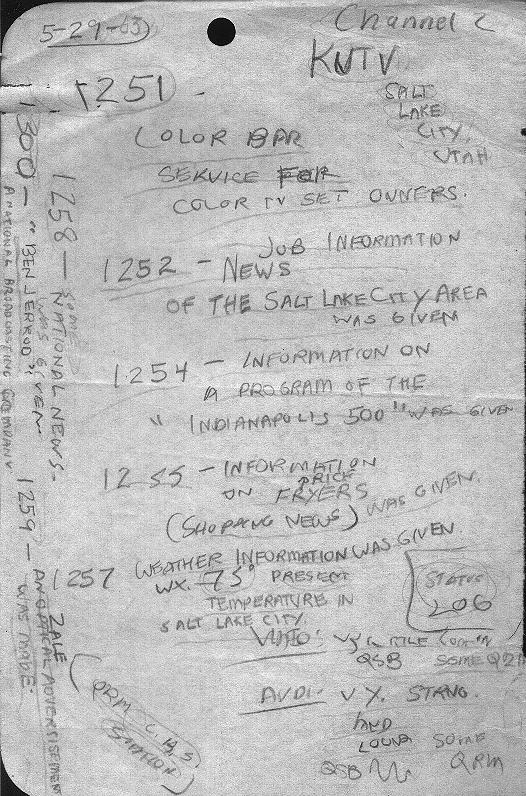 5-29-63
Channel 2
KUTV
SALT
LAKE
CITY,
UTAH
1251 -
COLOR BAR
SERVICE FOR
COLOR TV SET OWNERS.
JOB INFORMATION
1252 - NEWS
OF THE SALT LAKE CITY AREA
WAS GIVEN
1254 - INFORMATION ON
A PROGRAM OF THE
"INDIANAPOLIS 500" WAS GIVEN
1255 - INFORMATION
PRICE
ON FRYERS
(SHOPPING NEWS) WAS GIVEN.
1257 WEATHER INFORMATION WAS GIVEN.
WX. 75° PRESENT
TEMPERATURE IN
SALT LAKE CITY.
STATUS
206
QSB SOME
AUDI- VY. STRNG.
AND
LOUD SOME
QSB QRM
(QRM C.B.S
STATION)
1258 - SOME
NATIONAL NEWS-
WAS GIVEN
1259 - ZALE
AN OPTICAL ADVERTISEMENT
WAS MADE.
1300 - "BEN JERROD"
A NATIONAL BROADCASTING COMPANY